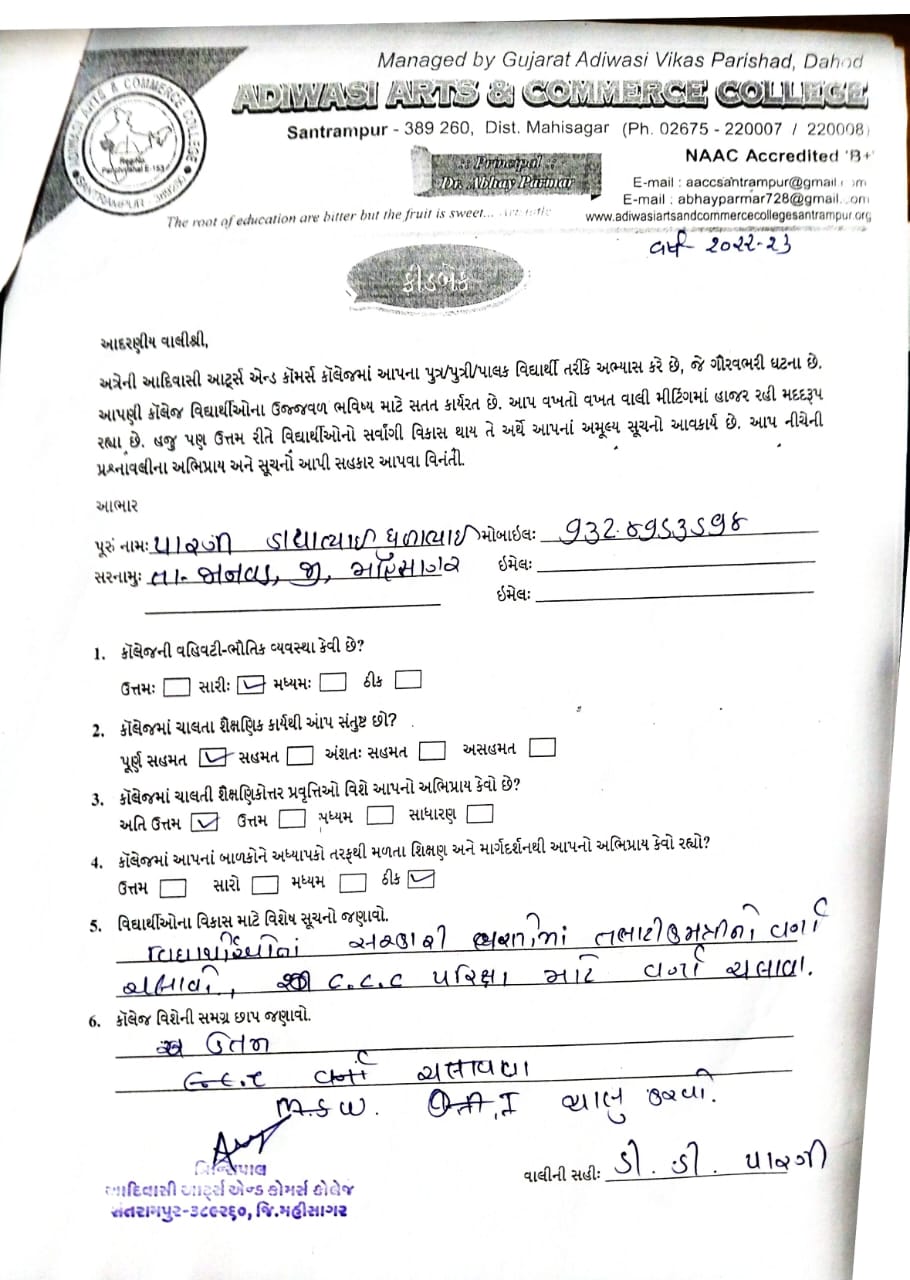 Managed by Gujarat Adiwasi Vikas Parishad, Dahod
ADIWASI ARTS & COMMERCE COLLEGE
Santrampur - 389 260, Dist. Mahisagar (Ph. 02675 - 220007 / 220008)
NAAC Accredited 'B+'
:: Principal ::
Dr. Abhay Parmar
E-mail : aaccsantrampur@gmail.com
E-mail : abhayparmar728@gmail.com
The root of education are bitter but the fruit is sweet...
www.adiwasiartsandcommercecollegesantrampur.org
ADIWASI ARTS & COMMERCE COLLEGE
SANTRAMPUR
વર્ષ ૨૦૨૨-૨૩
ફીડબેક
આદરણીય વાલીશ્રી,
અત્રેની આદિવાસી આર્ટ્સ એન્ડ કૉમર્સ કૉલેજમાં આપના પુત્ર/પુત્રી/પાલક વિદ્યાર્થી તરીકે અભ્યાસ કરે છે, જે ગૌરવભરી ઘટના છે.
આપણી કૉલેજ વિદ્યાર્થીઓના ઉજ્જવળ ભવિષ્ય માટે સતત કાર્યરત છે. આપ વખતો વખત વાલી મીટિંગમાં હાજર રહી મદદરૂપ
રહ્યા છે. હજુ પણ ઉત્તમ રીતે વિદ્યાર્થીઓનો સર્વાંગી વિકાસ થાય તે અર્થે આપનાં અમૂલ્ય સૂચનો આવકાર્ય છે. આપ નીચેની
પ્રશ્નાવલીના અભિપ્રાય અને સૂચનોં આપી સહકાર આપવા વિનંતી.
આભાર
પૂરું નામઃ પારગી ડાયાભાઈ ધુળાભાઈ મોબાઈલઃ
સરનામુઃ તા. જી. મહિસાગર ઈમેલઃ
ઈમેલઃ
1. કૉલેજની વહિવટી-ભૌતિક વ્યવસ્થા કેવી છે?
ઉત્તમઃ સારીઃ ✓ મધ્યમઃ ઠીક
2. કૉલેજમાં ચાલતા શૈક્ષણિક કાર્યથી આપ સંતુષ્ટ છો?
પૂર્ણ સહમત ✓ સહમત અંશતઃ સહમત અસહમત
3. કૉલેજમાં ચાલતી શૈક્ષણિકોત્તર પ્રવૃત્તિઓ વિશે આપનો અભિપ્રાય કેવો છે?
અતિ ઉત્તમ ✓ ઉત્તમ મધ્યમ સાધારણ
4. કૉલેજમાં આપનાં બાળકોને અધ્યાપકો તરફથી મળતા શિક્ષણ અને માર્ગદર્શનથી આપનો અભિપ્રાય કેવો રહ્યો?
ઉત્તમ સારો મધ્યમ ઠીક ✓
5. વિદ્યાર્થીઓના વિકાસ માટે વિશેષ સૂચનો જણાવો.
સરકારી તલાટી વર્ગો
C.C.C પરિક્ષા માટે વર્ગો ચલાવા.
6. કૉલેજ વિશેની સમગ્ર છાપ જણાવો.
ઉતમ
વર્ગો ચલાવવા
M.S.W. ચાલુ કરવી.
પ્રિન્સિપાલ
આદિવાસી આર્ટ્સ એન્ડ કોમર્સ કોલેજ
સંતરામપુર-૩૮૯૨૬૦, જિ.મહીસાગર
વાલીની સહીઃ ડી. ડી. પારગી